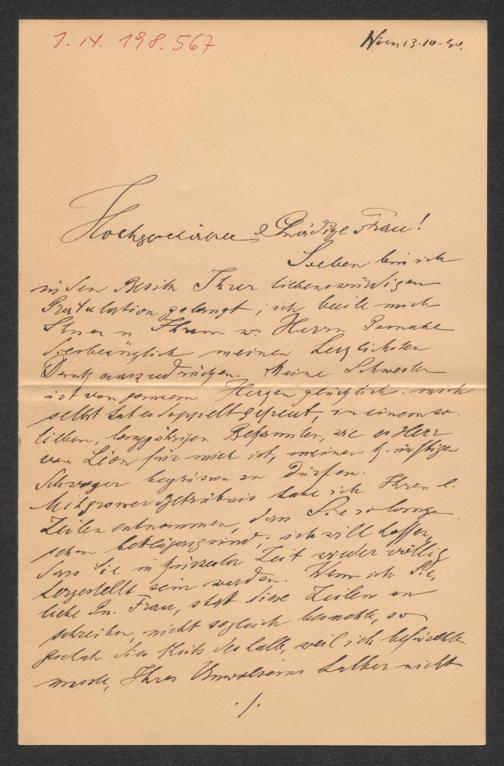 I. N. 198.567
Wien 13.10.90.
Hochverehrte Gnädige Frau!
Soeben bin ich
in den Besitz Ihrer liebenswürdigen
Gratulation gelangt; ich beeile mich
Ihnen u. Ihrem w. Herrn Gemahl
meinen herzlichsten
Dank auszudrücken. Meine Schwester
ist von ganzem Herzen glücklich. mich
selbst hat es doppelt gefreut, in einem so
lieben, langjährigen Bekannten, wie es Herr
von Lion für mich ist, meinen
Schwager begrüssen zu dürfen.
habe ich Ihren l.
Zeilen entnommen, dass Sie so lange
ich will hoffen,
dass Sie in kürzester Zeit wieder völlig
hergestellt sein werden. Wenn ich Sie,
liebe Gn. Frau, statt diese Zeilen zu
schreiben, nicht sogleich besuchte, so
geschah dies deshalb, weil ich befürchten
musste, Ihres Unwolseins halber nicht
./.